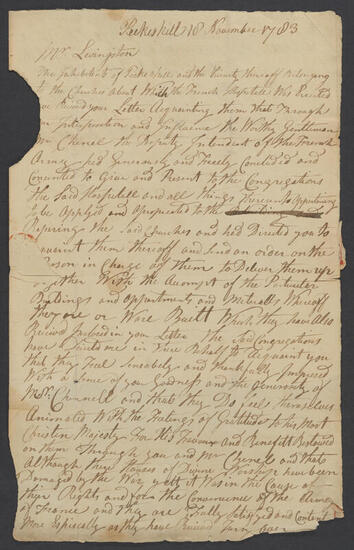 Peekskill 18 November 1783
Mr. Livingston
The Inhabitents of Peekskill and the Vicinity thereoff Belonging
to the Churches about Which the French Hospitell Was Erected
have Received your Letter Acquainting them that Through
your Interposition and Influence the Worthy Gentleman
Mr Chenel the Deputy Intendent of the French
Army had Generously and Freely Concluded and
Consented to Give and Present to the Congregations
The Said Hospitell and all things thereunto Appertaining
to be Applyed and Apropriated to the
Repairing the Said Churches and had Directed you To
Acquaint them thereoff and send an order on the
Person in Charge off them to Deliver them up
together With the Account of the Particuler
Buildings and Appartments and Metirialls Whereoff
they are or Ware Built Which they have Also
Received Inclosed in your Letter the Said Congregations
have Desired me in their Behalf to Acquaint you
that they Feel Sincearly and thankfully Impressed
With a Sence of your Goodness and the Generosity of
Mr. Chennell and that they Do feel themselves
Animated With the Feelings of Gratitude to his Most
Christen Majesty For His Favour and Benefitt Bestowed
on them Through you and Mr Chenell and that
Although their Houses of Divine Worship have been
Damaged by the War yett it Was in the Cause of
their Rights and for the Convenience of the Army
of France and they are Fully Satisfyed and Content
More Espicially as they have Received